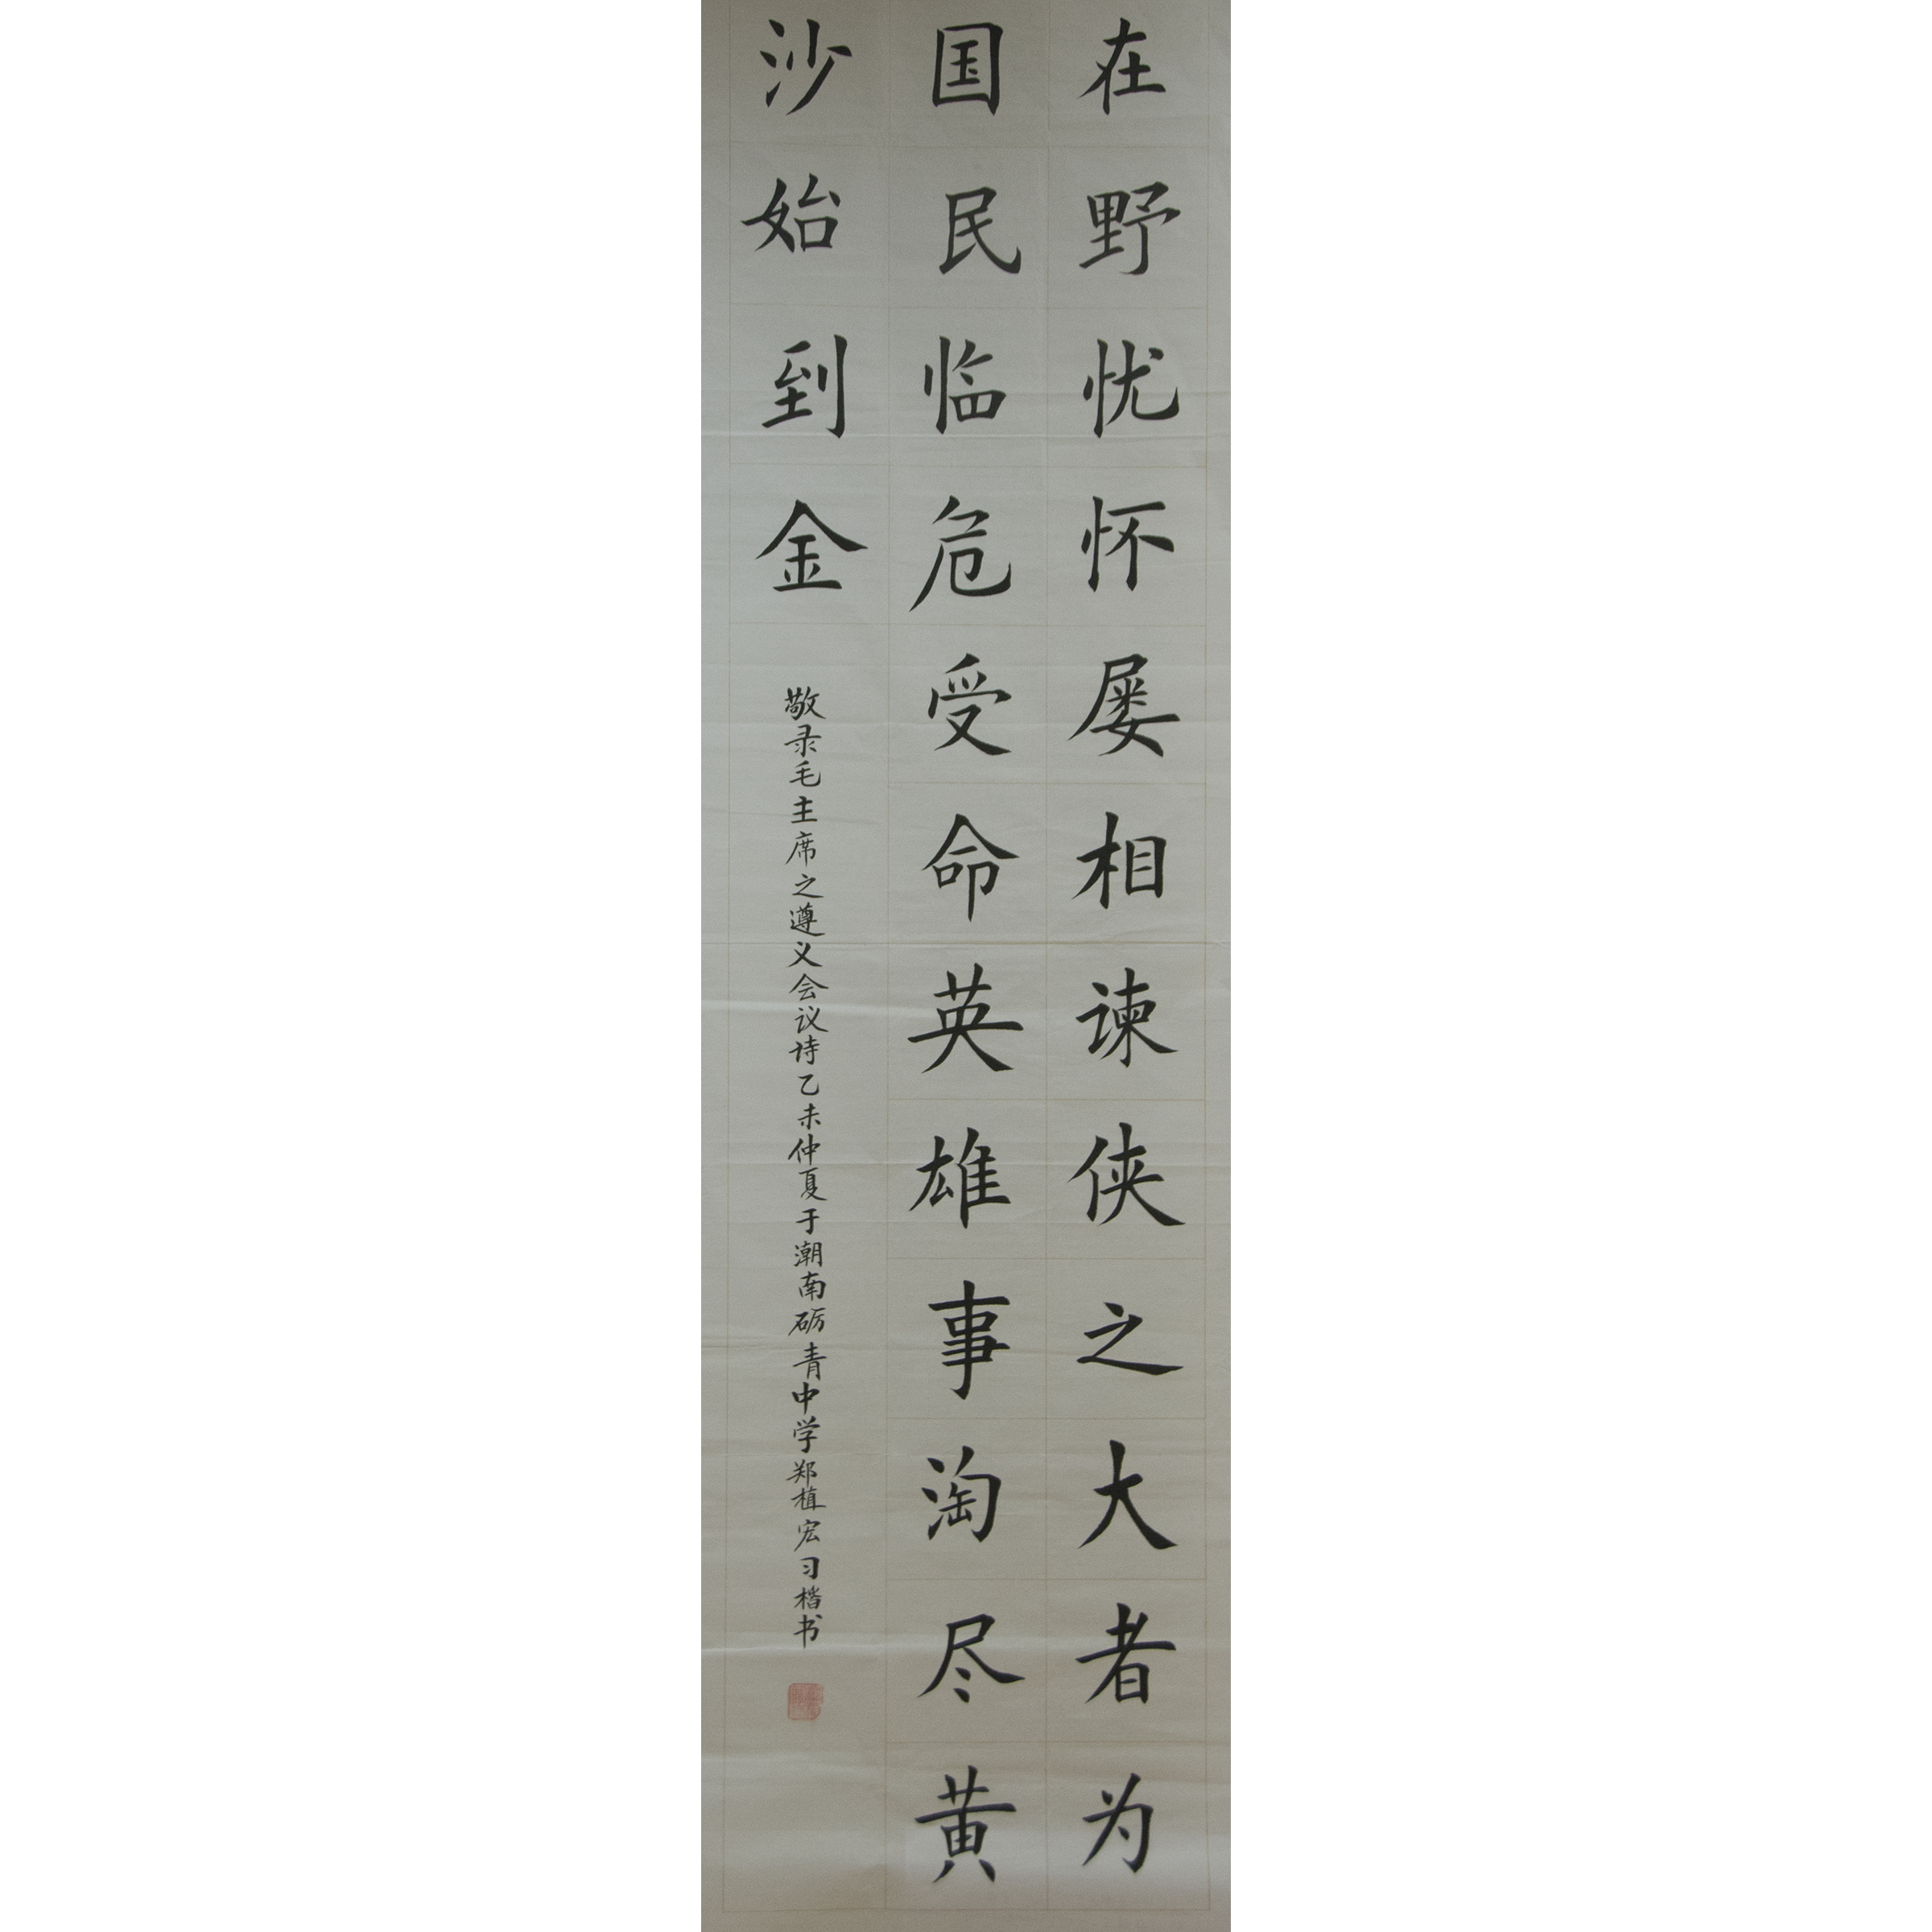 在野忧怀屡相谏侠之大者为
国民临危受命英雄事淘尽黄
沙始到金
敬录毛主席之遵义会议诗乙未仲夏于潮南砺青中学郑植宏习楷书